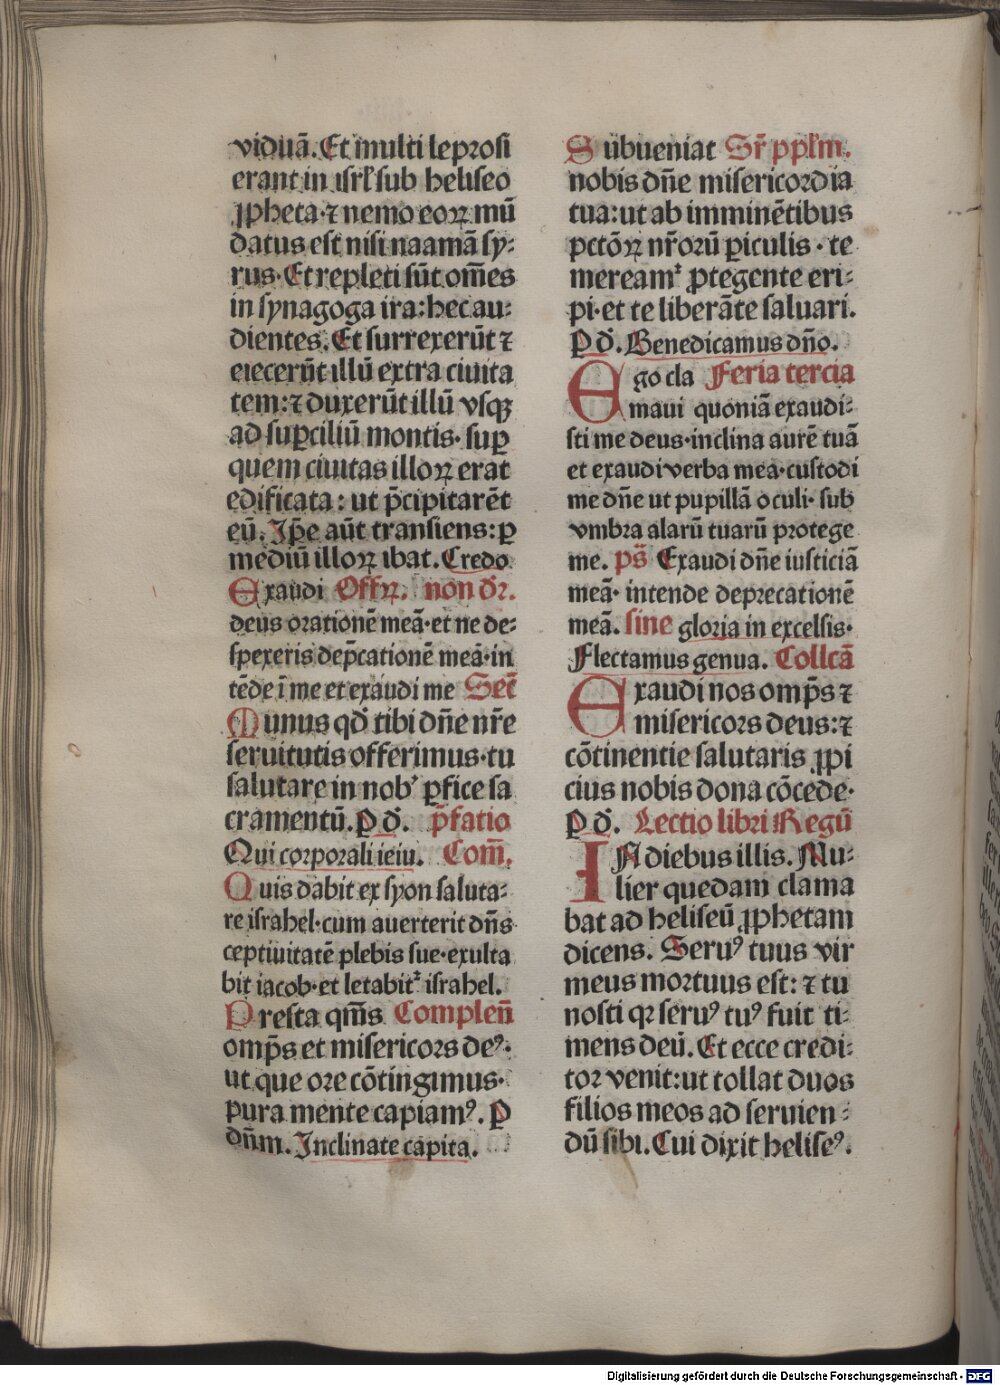 viduā. Et multi leprosi
erant in isrl̄ sub heliseo
ꝓpheta · ⁊ nemo eoꝝ mū
datus est nisi naamā sy⸗
rus · Et repleti sūt om̄es
in synagoga ira: hec au⸗
dientes. Et surrexerūt ⁊
eiecerūt illū extra ciuita
tem: ⁊ duxerūt illū vsqꝫ
ad suꝑciliū montis · suꝑ
quem ciuitas illoꝝ erat
edificata: ut p̄cipitarēt
eū. Ip̄e aūt transiens: ꝑ
mediū illoꝝ ibat. Credo
Exaudi Offꝝ. non dr̄.
deus orationē meā · et ne de⸗
spexeris dep̄cationē meā · in
tēde ī me et exaudi me Sec̄
Munus qd̄ tibi dn̄e nr̄e
seruitutis offerimus · tu
salutare in nob᾽ ꝑfice sa
cramentū. ꝑ d̄. p̄fatio
Qui corporali ieiu. Com̄.
Quis dabit ex syon saluta⸗
re israhel · cum auerterit dn̄s
ceptiuitatē plebis sue · exulta
bit iacob · et letabit᷑ israhel.
Presta qm̄s Complen̄
omp̄s et misericors deꝰ ·
ut que ore cōtingimus ·
pura mente capiamꝰ. ꝑ
dn̄m. Inclinate capita.
Subueniat Sr̄ ppl̄m.
nobis dn̄e misericordia
tua: ut ab imminētibus
pctōꝝ nr̄orū ꝑiculis · te
mereamᷣ ꝓtegente eri⸗
pi · et te liberāte saluari.
ꝑ d̄. Benedicamus dn̄o.
Ego cla Feria tercia
maui quoniā exaudi⸗
sti me deus · inclina aurē tuā
et exaudi verba mea · custodi
me dn̄e ut pupillā oculi · sub
vmbra alarū tuarū protege
me. ps̄ Exaudi dn̄e iusticiā
meā · intende deprecationē
meā. sine gloria in excelsis ·
Flectamus genua. Collcā
Exaudi nos omp̄s ⁊
misericors deus: ⁊
cōtinentie salutaris ꝓpi
cius nobis dona cōcede ·
ꝑ d̄. Lectio libri Regū
IN diebus illis. Mu⸗
lier quedam clama
bat ad heliseū ꝓphetam
dicens. Seruꝰ tuus vir
meus mortuus est: ⁊ tu
nosti qꝛ seruꝰ tuꝰ fuit ti⸗
mens deū. Et ecce credi⸗
tor venit: ut tollat duos
filios meos ad seruien⸗
dū sibi. Cui dixit heliseꝰ.
Digitalisierung gefördert durch die Deutsche Forschungsgemeinschaft - DFG